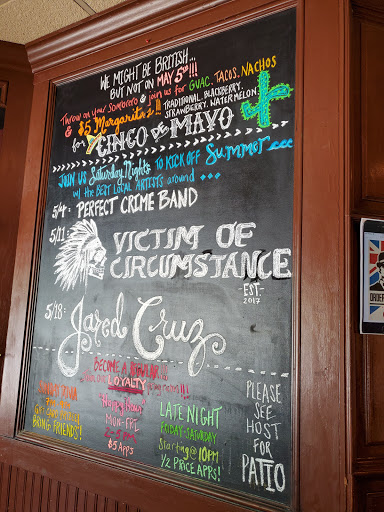 WE MIGHT BE BRITISH...
BUT NOT ON MAY 5th!!!
Throw on your Sombrero & join us for GUAC, TACOS, NACHOS
& $5 Margaritas!!! TRADITIONAL, BLACKBERRY,
STRAWBERRY, WATERMELON
for CINCO de MAYO
JOIN US Saturday Nights TO KICK OFF Summer
w/ the BEST LOCAL ARTISTS around...
5/4: PERFECT CRIME BAND
5/11: VICTIM OF
CIRCUMSTANCE
-EST-
2017
5/18: Jared Cruz
BECOME A REGULAR
LOYALTY
Happy Hour
MON-FRI
$5 Apps
BRING FRIENDS!
LATE NIGHT
FRIDAY-SATURDAY
Starting @ 10PM
1/2 PRICE APPS!
PLEASE
SEE
HOST
FOR
PATIO